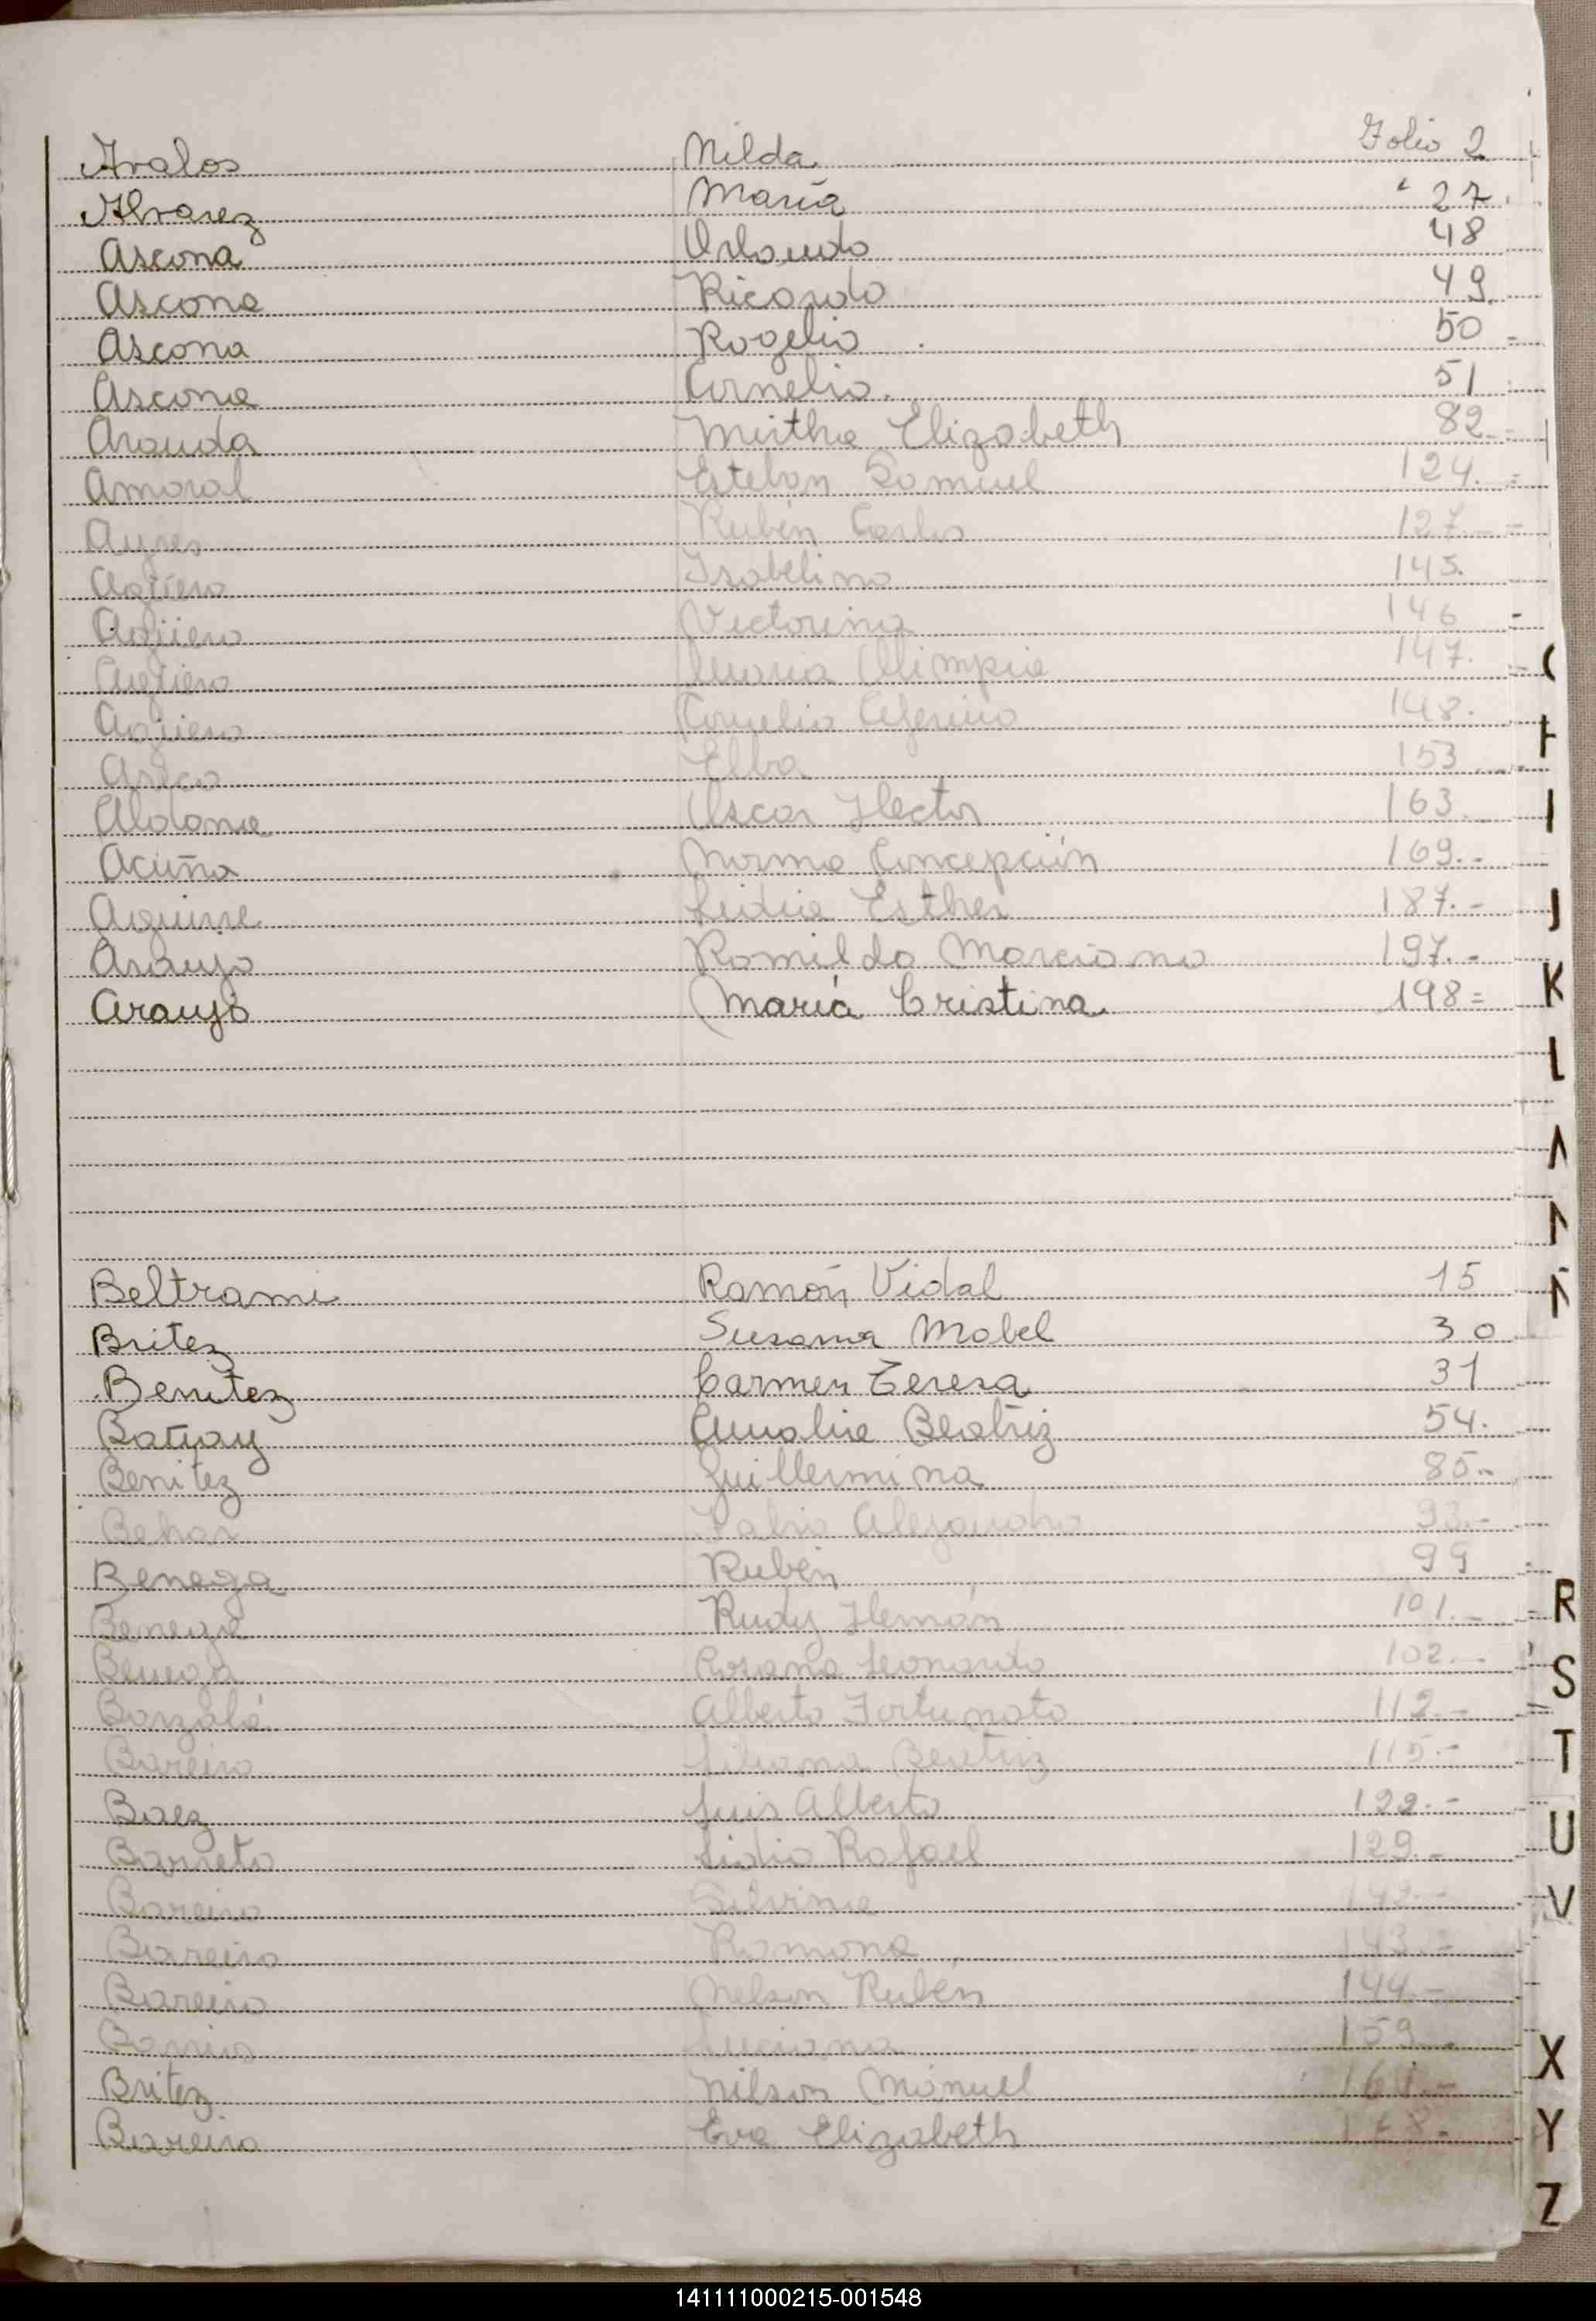 Avalos Nilda Folio 2
Alvarez María " 27
Ascona Orlando 48
Ascona Ricardo 49
Ascona Rogelio 50
Ascona Cornelio 51
Aranda Mirtha Elizabeth 82
Amaral Esteban Samuel 124
Ayres Rubén Carlos 127
Agüero Isabelino 145
Agüero Victorina 146
Agüero María Olimpia 147
Agüero Cornelio Ceferino 148
Elba 153
Aldana Oscar Hector 163
Acuña Norma Concepción 169
Aguirre Lidia Esther 187
Araujo Romildo Marciano 197
Araujo María Cristina 198
Beltrame Ramón Vidal 15
Britez Susana Mabel 30
Benitez Carmen Teresa 31
Amalia Beatriz 54
Benitez Guillermina 85
Behar Alejandro 93
Benega Rubén 99
Benega Rudy Hernán 101
Benega Leonardo 102
Alberto Fortunato 112
Bareiro Liliana Beatriz 115
Baez Luis Alberto 122
Barreto Lidio Rafael 129
Bareiro Silvina
Bareiro Ramona 143
Bareiro Nelson Rubén 144
Luciana 159
Britez Nilson Manuel
Bareiro Eva Elizabeth
C
H
I
J
K
L
R
S
T
U
V
X
Y
Z
141111000215-001548